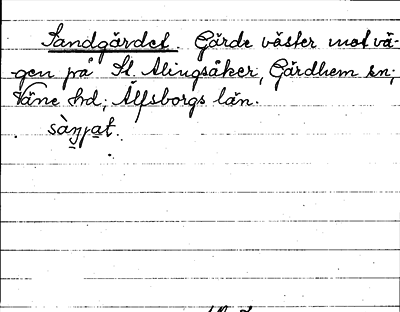 Sandgärdet. Gärde väster mot vä-
gen på St. Alingsåker, Gärdhem sn;
Väne hd; Älfsborgs län.